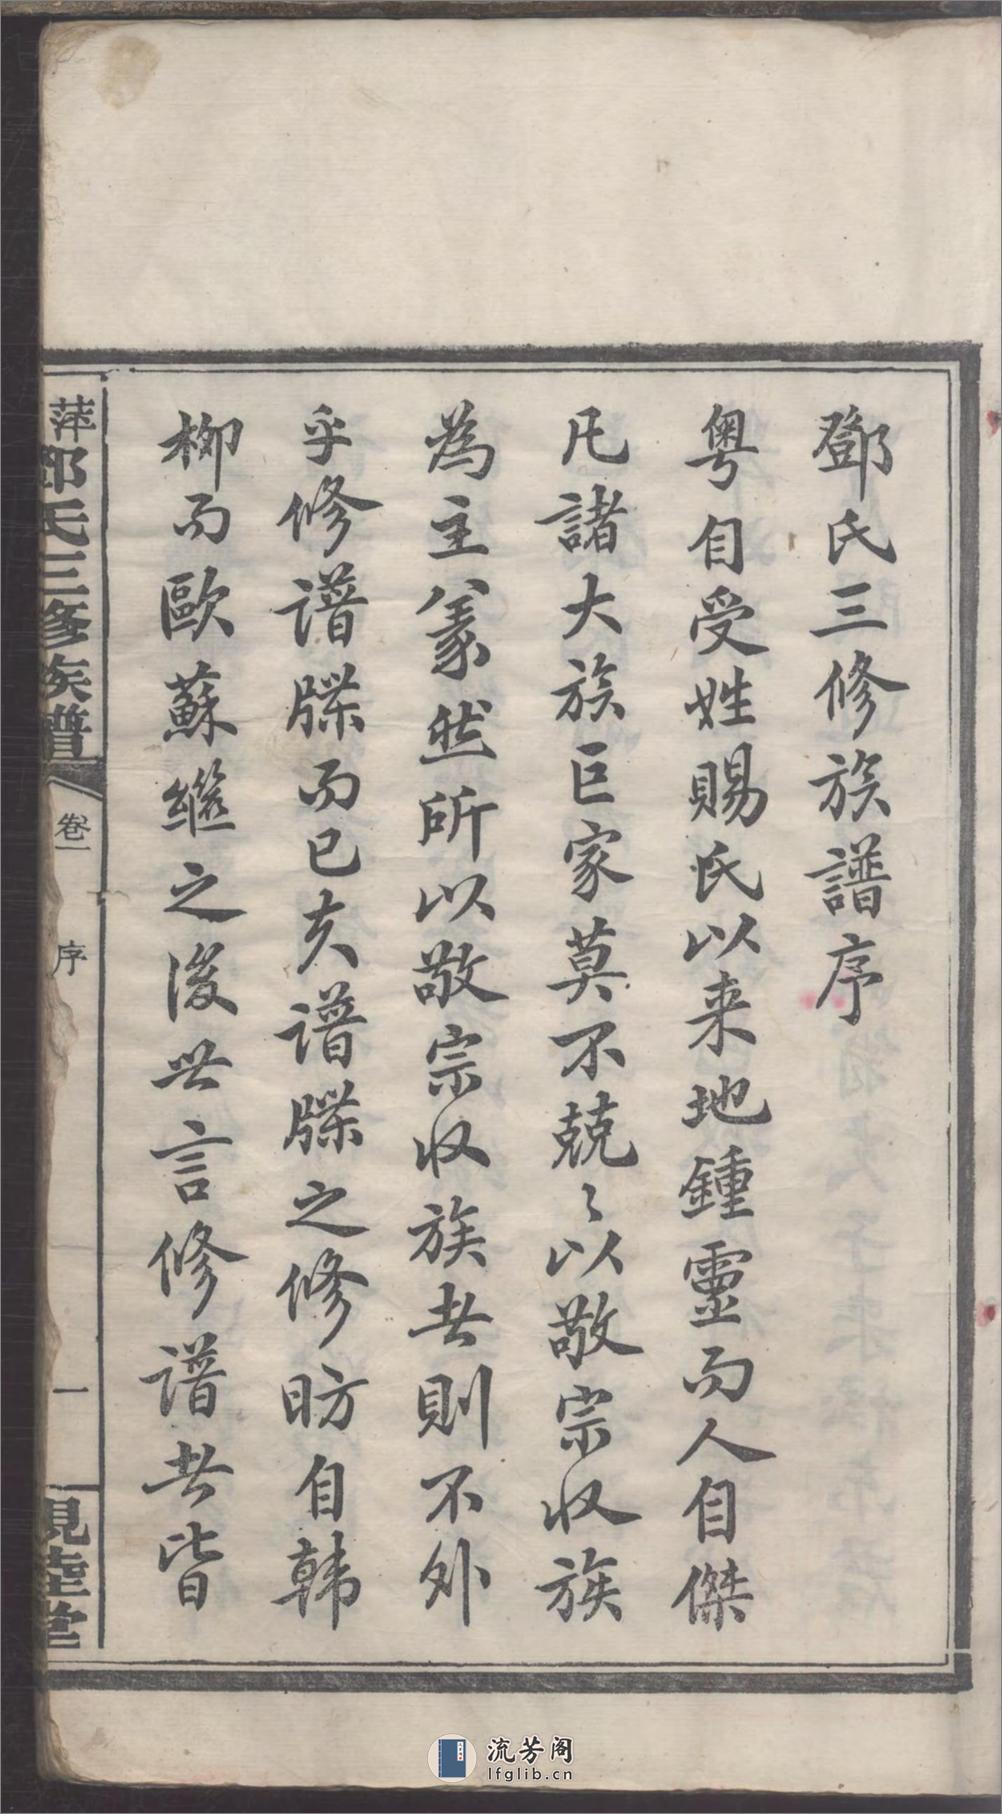 鄧氏三修族譜序
粵自受姓賜氏以来地鍾靈而人自傑
凡諸大族巨家莫不兢〻以敬宗収族
為主義然所以敬宗収族者則不外
乎修譜牒而已夫譜牒之修昉自韩
柳而歐蘇繼之後世言修譜者皆
萍鄧氏三修族譜
卷一
序
一
睍睦堂
流芳阁
lfglib.cn